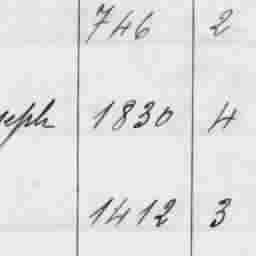 746 2
seph 1830 4
1412 3